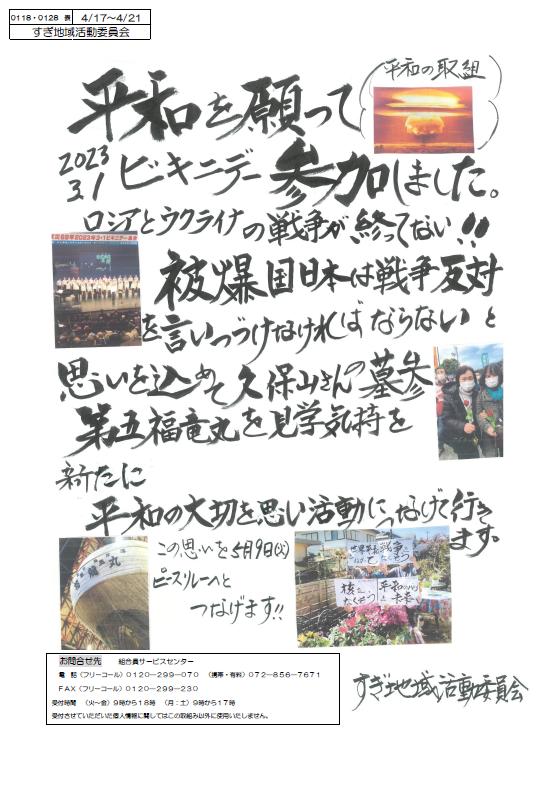 0118・0128 表 4/17～4/21
すぎ地域活動委員会
平和の取組
平和を願って
2023
3.1 ビキニデー参加しました。
ロシアとウクライナの戦争が終ってない!!
被爆国日本は戦争反対
を言いつづけなければならないと
思いを込めて久保山さんの墓参
第五福竜丸を見学気持を
新たに
平和の大切を思い活動につなげて行き
ます。
この思いを5月9日(火)
ピースリレーへと
つなげます!!
お問合せ先 組合員サービスセンター
電 話（フリーコール）0120―299―070 （携帯・有料）072―856―7671
FAX（フリーコール）0120―299―230
受付時間 （火～金）9時から18時 （月：土）9時から17時
受付させていただいた個人情報に関してはこの取組み以外に使用いたしません。
すぎ地域活動委員会